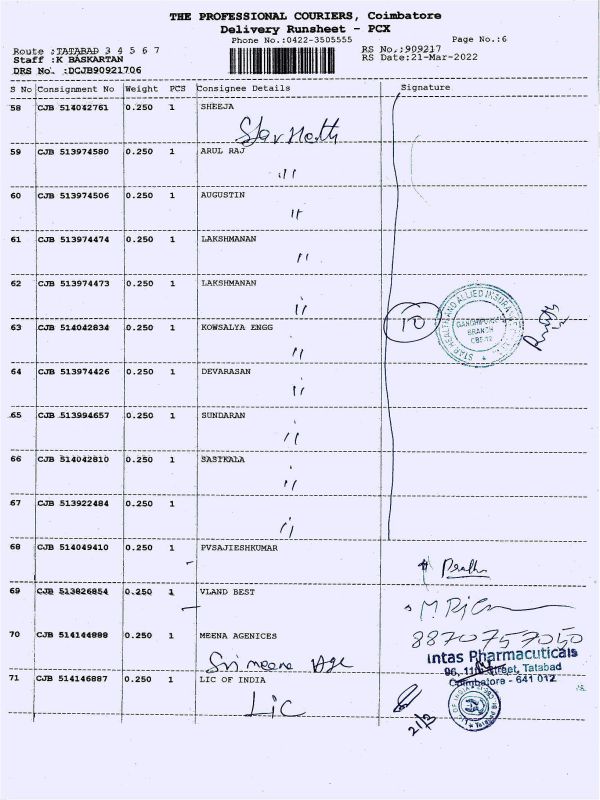 THE PROFESSIONAL COURIERS, Coimbatore
Delivery Runsheet - PCX
Phone No.:0422-3505555
Page No.:6
Route :TATABAD 3 4 5 6 7
RS No.:909217
Staff :K BASKARTAN
RS Date:21-Mar-2022
DRS No. :DCJB90921706
S No Consignment No Weight PCS Consignee Details Signature
58 CJB 514042761 0.250 1 SHEEJA
Star Heath
59 CJB 513974580 0.250 1 ARUL RAJ
11
60 CJB 513974506 0.250 1 AUGUSTIN
11
61 CJB 513974474 0.250 1 LAKSHMANAN
11
62 CJB 513974473 0.250 1 LAKSHMANAN
11
10
STAR HEALTH AND ALLIED INSURANCE
BRANCH
63 CJB 514042834 0.250 1 KOWSALYA ENGG
11
64 CJB 513974426 0.250 1 DEVARASAN
11
65 CJB 513994657 0.250 1 SUNDARAN
11
66 CJB 514042810 0.250 1 SASIKALA
11
67 CJB 513922484 0.250 1
11
68 CJB 514049410 0.250 1 PVSAJIESHKUMAR
69 CJB 513826854 0.250 1 VLAND BEST
70 CJB 514144888 0.250 1 MEENA AGENICES
8870757050
Sri meena Age
Intas Pharmacuticals
96, 11th Street, Tatabad
Coimbatore - 641 012
71 CJB 514146887 0.250 1 LIC OF INDIA
LIC
21/3